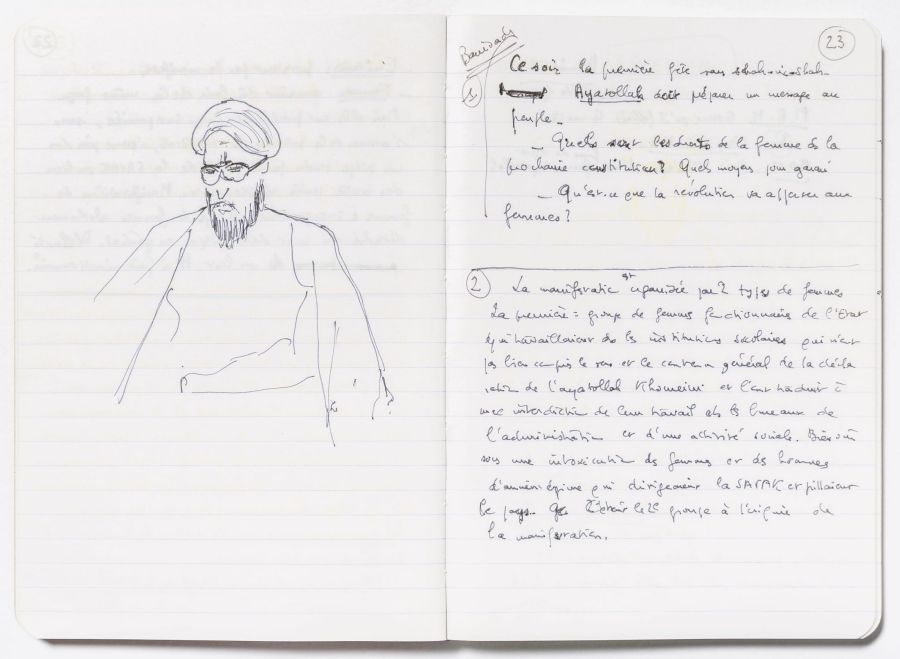 22
23
Banisadr
1)
Ce soir la première fête sans schah-
Ayatollah doit préparer un message au
peuple.
- Quels sont les droits de la femme ds la
prochaine constitution? Quels moyens pour garanti
- Qu'est-ce que la révolution va apporter aux
femmes?
2
La manifestatio est organisée par 2 types de femmes
La première = groupe de femmes fonctionnaires de l'Etat
qui travaillaient ds les institutions scolaires qui n'ont
pas bien compris le sens et le contenu général de la décla
ration de l'ayatollah Khomeini et l'ont traduit à
une interdiction de leur travail ds les bureaux de
l'administration et d'une activité sociale. Bien sûr
sous une intoxication des femmes et des hommes
d'ancien régime qui dirigeaient la SAVAK et pillaient
le pays. C'était le 2e groupe à l'origine de
la manifestation.